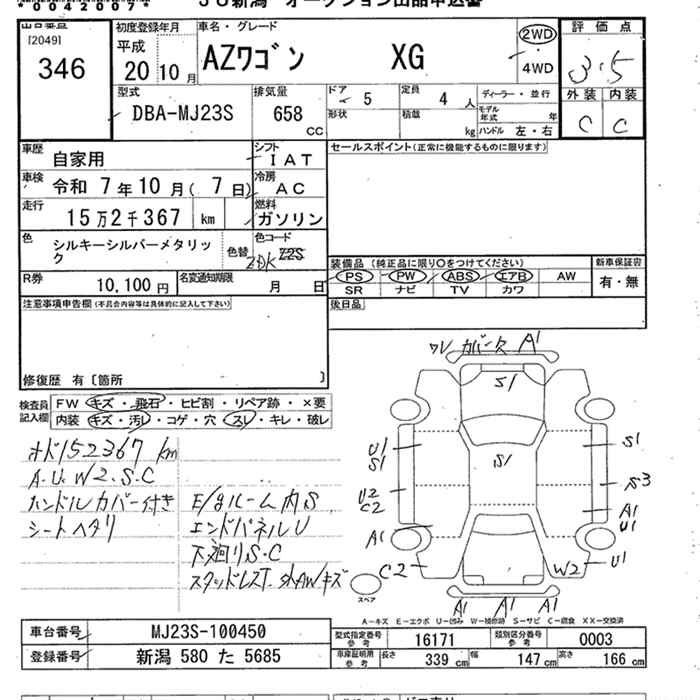 *00420077*
JU新潟 オークション出品申込書
出品番号
[2049]
346
初度登録年月
平成
20 10月
車名・グレード
AZワゴン XG
2WD
4WD
評価点
3.5
外装 内装
C C
型式
DBA-MJ23S
排気量
658
CC
ドア
5
定員
4 人
形状
積載
kg
ディーラー・並行
モデル年式 年
ハンドル 左・右
車歴
自家用
シフト
IAT
車検
令和 7年10月( 7日)
冷房
AC
走行
15万2千367 km
燃料
ガソリン
色
シルキーシルバーメタリック
色替
色コード
ZDK Z2S
R券
10,100円
名変通知期限
月 日
セールスポイント(正常に機能するものに限ります)
装備品(純正品に限り○をつけてください)
PS PW ABS エアB AW
SR ナビ TV カワ
新車保証書
有・無
後日品
注意事項申告欄(不具合内容等は具体的に記入して下さい)
修復歴 有〔箇所 〕
検査員記入欄
FW キズ・飛石・ヒビ割・リペア跡・×要
内装 キズ・汚レ・コゲ・穴・スレ・キレ・破レ
オド152367km
A.U.W2.S.C
ハンドルカバー付き
シートヘタリ
E/gルーム内S
エンドパネルU
下廻りS.C
スタッドレスT.社外AWキズ
ワレ カバー欠 A1
S1
S1
U1
S1
U2
C2
A1
C2
S1
S3
A1
U1
W2 U1
A1 A1 A1
スペア
A－キズ E－エクボ U－凹み W－補修跡 S－サビ C－腐食 XX－交換済
車台番号
MJ23S-100450
登録番号
新潟 580 た 5685
型式指定番号
参考
16171
類別区分番号
参考
0003
車庫証明用
参考
長さ 339 cm
幅 147 cm
高さ 166 cm